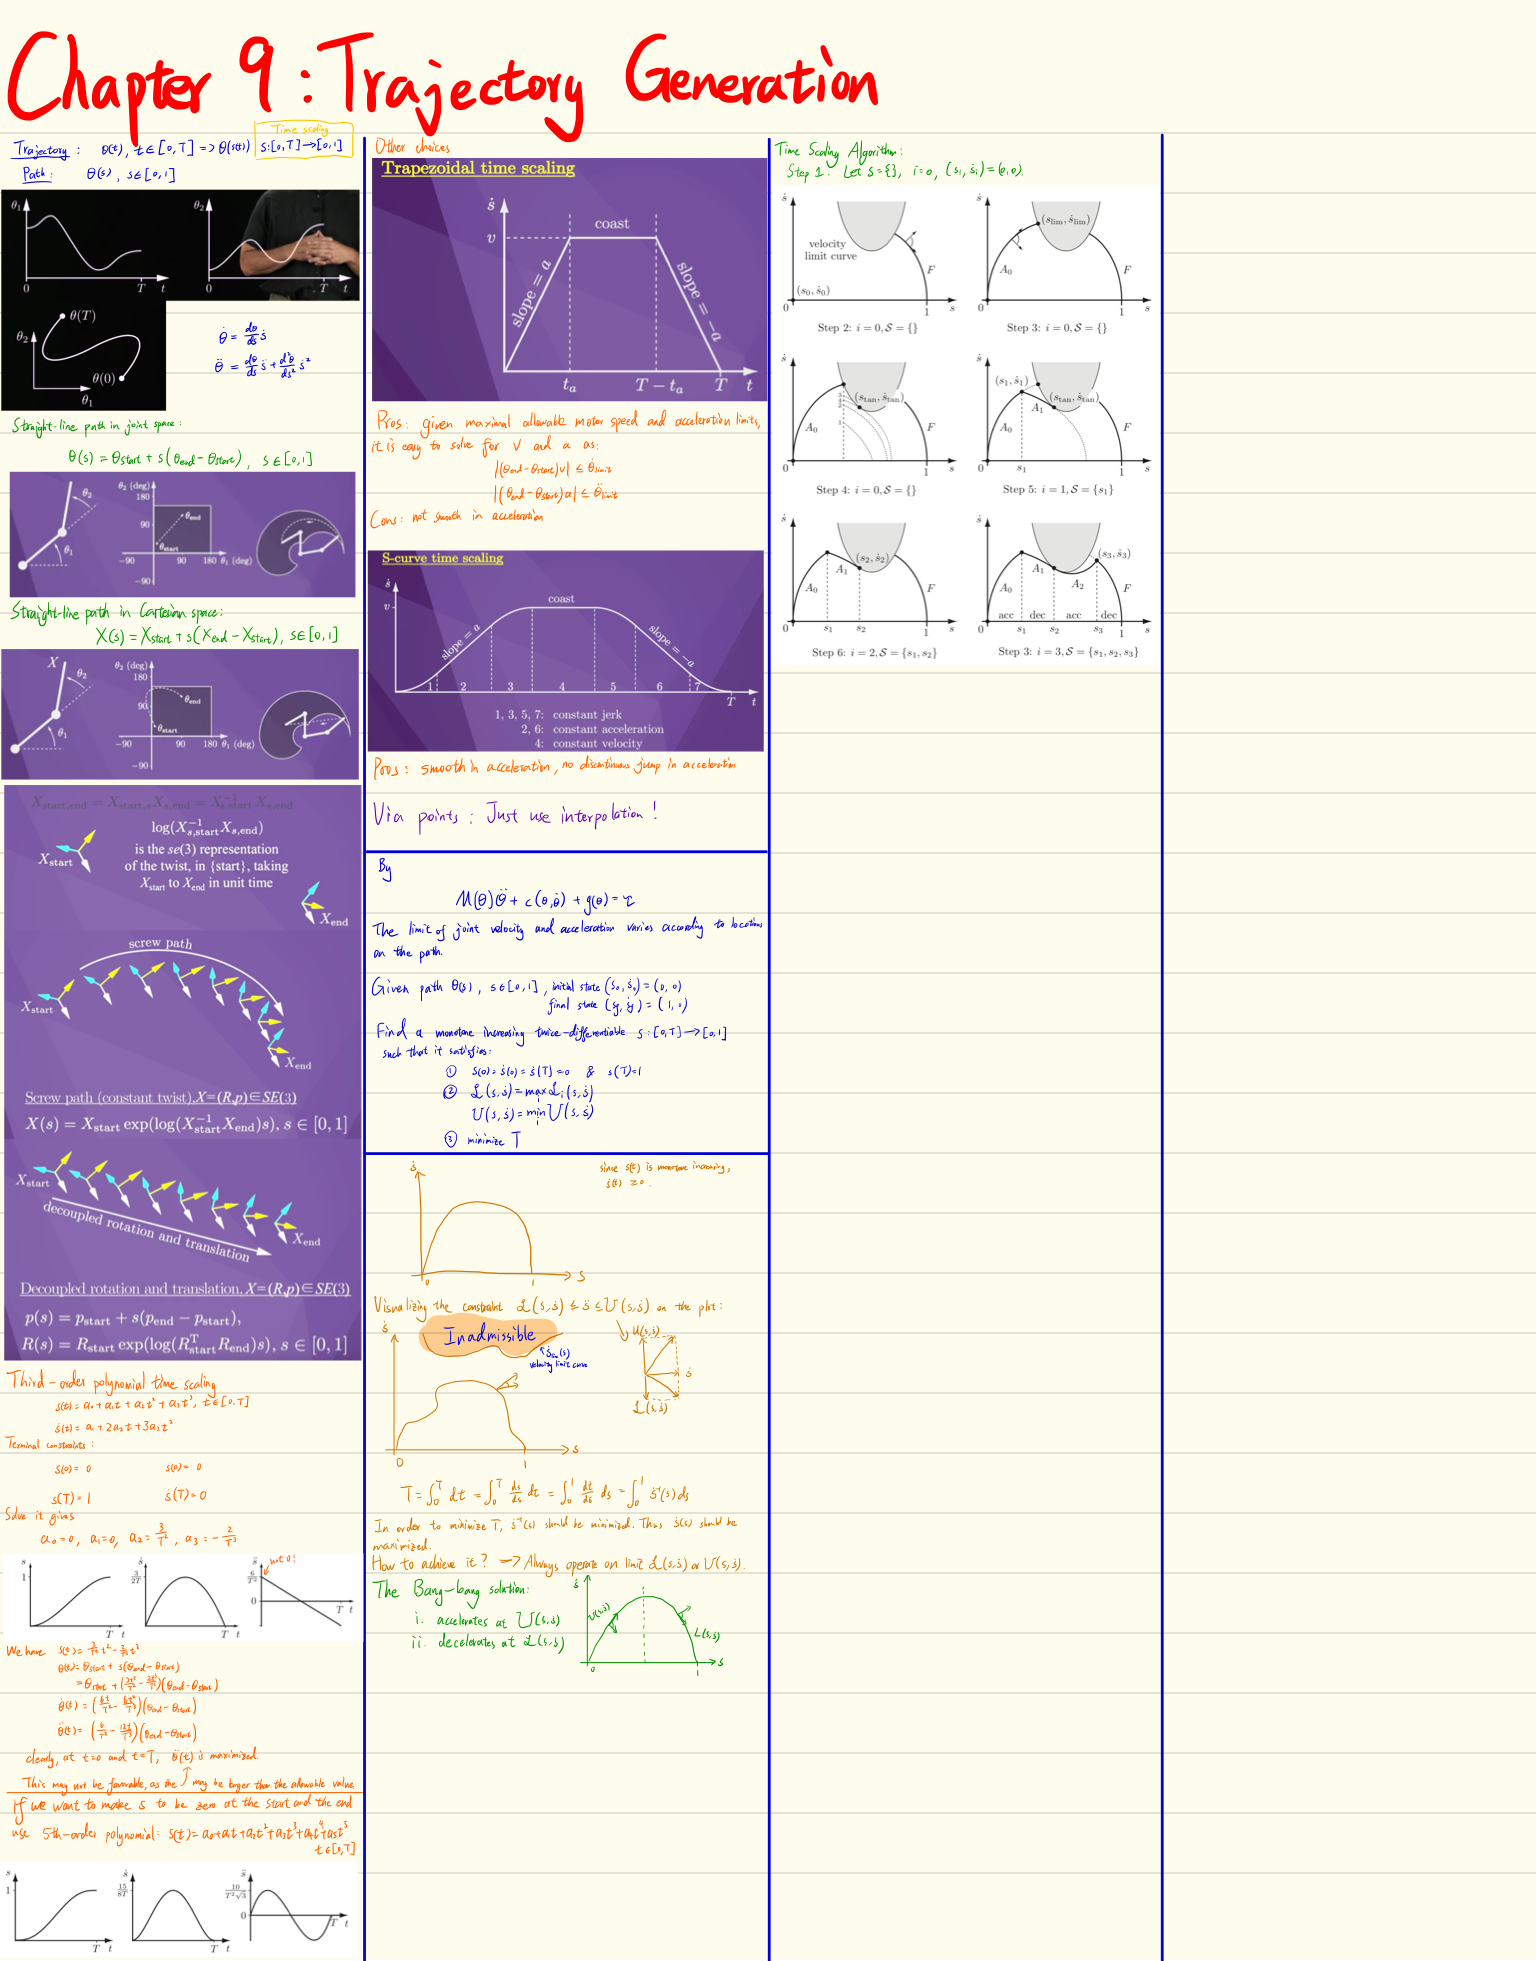 Chapter 9 : Trajectory Generation
Trajectory : θ(t), t∈[0,T] => θ(s(t))
Time scaling
s:[0,T]→[0,1]
Path : θ(s), s∈[0,1]
θ₁
0
T t
θ₂
0
T t
θ₂
θ(T)
θ(0)
θ₁
θ̇ = dθ/ds ṡ
θ̈ = dθ/ds s̈ + d²θ/ds² ṡ²
Straight-line path in joint space :
θ(s) = θstart + s(θend - θstart), s∈[0,1]
θ₂
θ₁
θ₂ (deg)
180
90
θend
θstart
−90 90 180 θ₁ (deg)
−90
Straight-line path in Cartesian space:
X(s) = Xstart + s(Xend - Xstart), s∈[0,1]
X
θ₂
θ₁
θ₂ (deg)
180
90
θend
θstart
−90 90 180 θ₁ (deg)
−90
Xstart,end = Xstart,s Xs,end = X⁻¹s,start Xs,end
log(X⁻¹s,start Xs,end)
is the se(3) representation
of the twist, in {start}, taking
Xstart to Xend in unit time
Xstart
Xend
screw path
Xstart
Xend
Screw path (constant twist), X=(R,p)∈SE(3)
X(s) = Xstart exp(log(X⁻¹start Xend)s), s ∈ [0, 1]
Xstart
decoupled rotation and translation
Xend
Decoupled rotation and translation, X=(R,p)∈SE(3)
p(s) = pstart + s(pend − pstart),
R(s) = Rstart exp(log(Rᵀstart Rend)s), s ∈ [0, 1]
Third-order polynomial time scaling
s(t) = a₀ + a₁t + a₂t² + a₃t³, t∈[0,T]
ṡ(t) = a₁ + 2a₂t + 3a₃t²
Terminal constraints :
s(0) = 0 ṡ(0) = 0
s(T) = 1 ṡ(T) = 0
Solve it gives
a₀=0, a₁=0, a₂= 3/T², a₃ = - 2/T³
s
1
T t
ṡ
3/2T
T t
s̈
not 0!
6/T²
0
T t
We have s(t) = 3/T² t² - 2/T³ t³
θ(t) = θstart + s(θend - θstart)
= θstart + (3t²/T² - 2t³/T³)(θend - θstart)
θ̇(t) = (6t/T² - 6t²/T³)(θend - θstart)
θ̈(t) = (6/T² - 12t/T³)(θend - θstart)
clearly, at t=0 and t=T, θ̈(t) is maximized.
This may not be favorable, as the may be larger than the allowable value
if we want to make s̈ to be zero at the start and the end
use 5th-order polynomial: s(t) = a₀+a₁t+a₂t²+a₃t³+a₄t⁴+a₅t⁵
t∈[0,T]
s
1
T t
ṡ
15/8T
T t
s̈
10/T²√3
0
T t
Other choices
Trapezoidal time scaling
ṡ
v
coast
slope = a
slope = −a
ta T − ta T t
Pros: given maximal allowable motor speed and acceleration limits,
it is easy to solve for v and a as:
|(θend-θstart)v| ≤ θ̇limit
|(θend-θstart)a| ≤ θ̈limit
Cons: not smooth in acceleration
S-curve time scaling
ṡ
v
coast
slope = a
slope = −a
1 2 3 4 5 6 7
T t
1, 3, 5, 7: constant jerk
2, 6: constant acceleration
4: constant velocity
Pros : smooth in acceleration, no discontinuous jump in acceleration
Via points : Just use interpolation !
By
M(θ)θ̈ + c(θ,θ̇) + g(θ) = τ
The limit of joint velocity and acceleration varies according to locations
on the path.
Given path θ(s), s∈[0,1], initial state (s₀,ṡ₀) = (0, 0)
final state (sf, ṡf) = (1, 0)
Find a monotone increasing twice-differentiable s : [0,T] → [0,1]
such that it satisfies:
① s(0) = ṡ(0) = ṡ(T) = 0 & s(T)=1
② L(s,ṡ) = max L i (s,ṡ)
i
U(s,ṡ) = min U(s,ṡ)
i
③ minimize T
ṡ
since s(t) is monotone increasing,
ṡ(t) ≥ 0 .
0 1 s
Visualizing the constraint L(s,ṡ) ≤ s̈ ≤ U(s,ṡ) on the plot:
ṡ
Inadmissible
ṡlim(s)
velocity limit curve
0 1 s
U(s,ṡ)
ṡ
L(s,ṡ)
T = ∫₀ᵀ dt = ∫₀ᵀ ds/ds dt = ∫₀¹ dt/ds ds = ∫₀¹ ṡ⁻¹(s) ds
In order to minimize T, ṡ⁻¹(s) should be minimized. Thus ṡ(s) should be
maximized.
How to achieve it? → Always operate on limit L(s,ṡ) or U(s,ṡ).
The Bang-bang solution:
i. accelerates at U(s,ṡ)
ii. decelerates at L(s,ṡ)
ṡ
U(s,ṡ)
L(s,ṡ)
0 1 s
Time Scaling Algorithm:
Step 1: Let S = {}, i=0, (si, ṡi) = (0,0).
ṡ
velocity
limit curve
(s₀, ṡ₀)
F
0 1 s
Step 2: i = 0, S = {}
ṡ
(slim, ṡlim)
A₀
F
0 1 s
Step 3: i = 0, S = {}
ṡ
3
2
1
(stan, ṡtan)
A₀
F
0 1 s
Step 4: i = 0, S = {}
ṡ
(s₁, ṡ₁)
(stan, ṡtan)
A₀
A₁
F
0 s₁ 1 s
Step 5: i = 1, S = {s₁}
ṡ
(s₂, ṡ₂)
A₀
A₁
F
0 s₁ s₂ 1 s
Step 6: i = 2, S = {s₁, s₂}
ṡ
(s₃, ṡ₃)
A₀
A₁
A₂
F
acc dec acc dec
0 s₁ s₂ s₃ 1 s
Step 3: i = 3, S = {s₁, s₂, s₃}